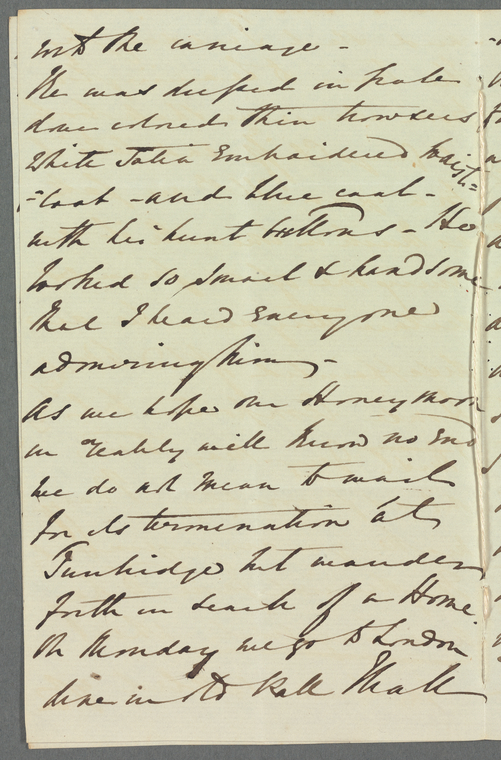 into the carriage -
He was dressed in pale
dove colored thin trowsers
White Satin Embroidered Waist=
=Coat - and blue coat -
with his hunt buttons - He
looked so smart & handsome
that I heard Everyone
admiring him, -
As we hope our Honeymoon
in reality will know no End
we do not mean to wait
for its termination at
Tunbridge but wander
forth in search of a Home.
On Monday we go to London
dine in old